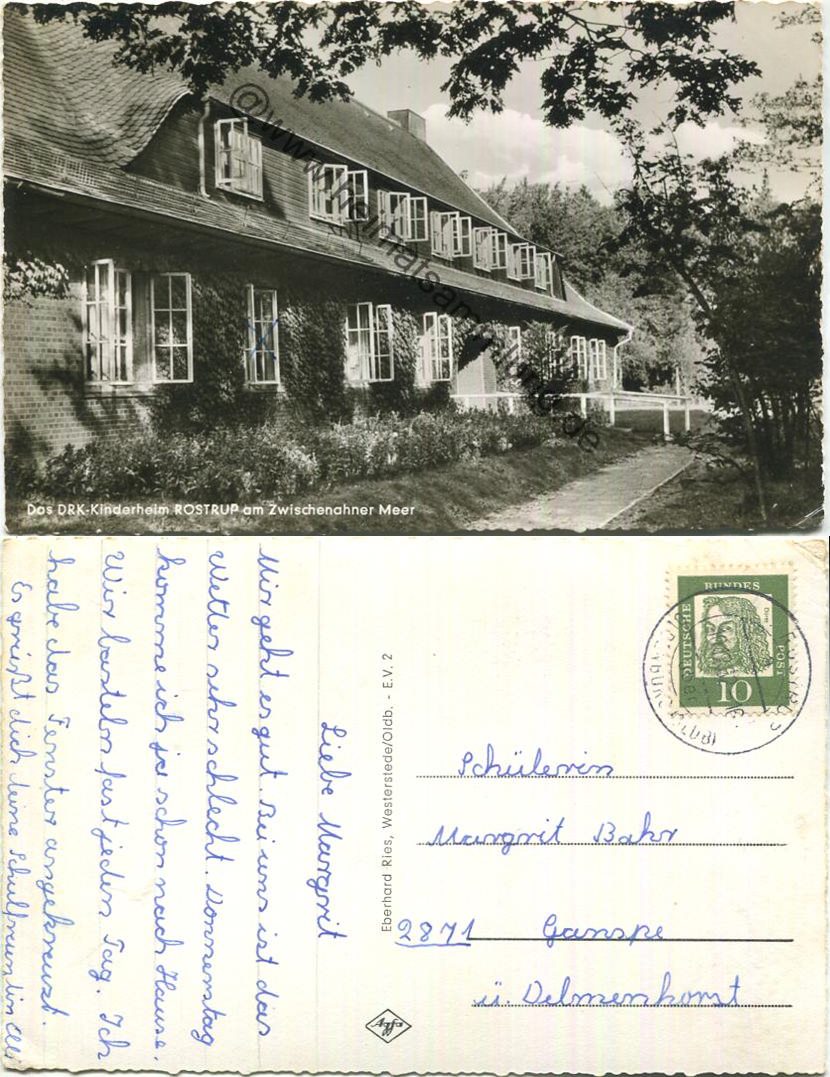 @www.heimatsammlung.de
Das DRK-Kinderheim ROSTRUP am Zwischenahner Meer
Liebe Margrit
Mir geht es gut. Bei uns ist das
Wetter sehr schlecht. Donnerstag
komme ich ja schon nach Hause.
Wir basteln fast jeden Tag. Ich
habe das Fenster angekreuzt.
Es grüßt dich deine Schulfreundin
Eberhard Ries, Westerstede/Oldb. - E.V. 2
DEUTSCHE
BUNDES
POST
10
Schülerin
Margrit Bahr
2871 Ganspe
ü. Delmenhorst
Agfa